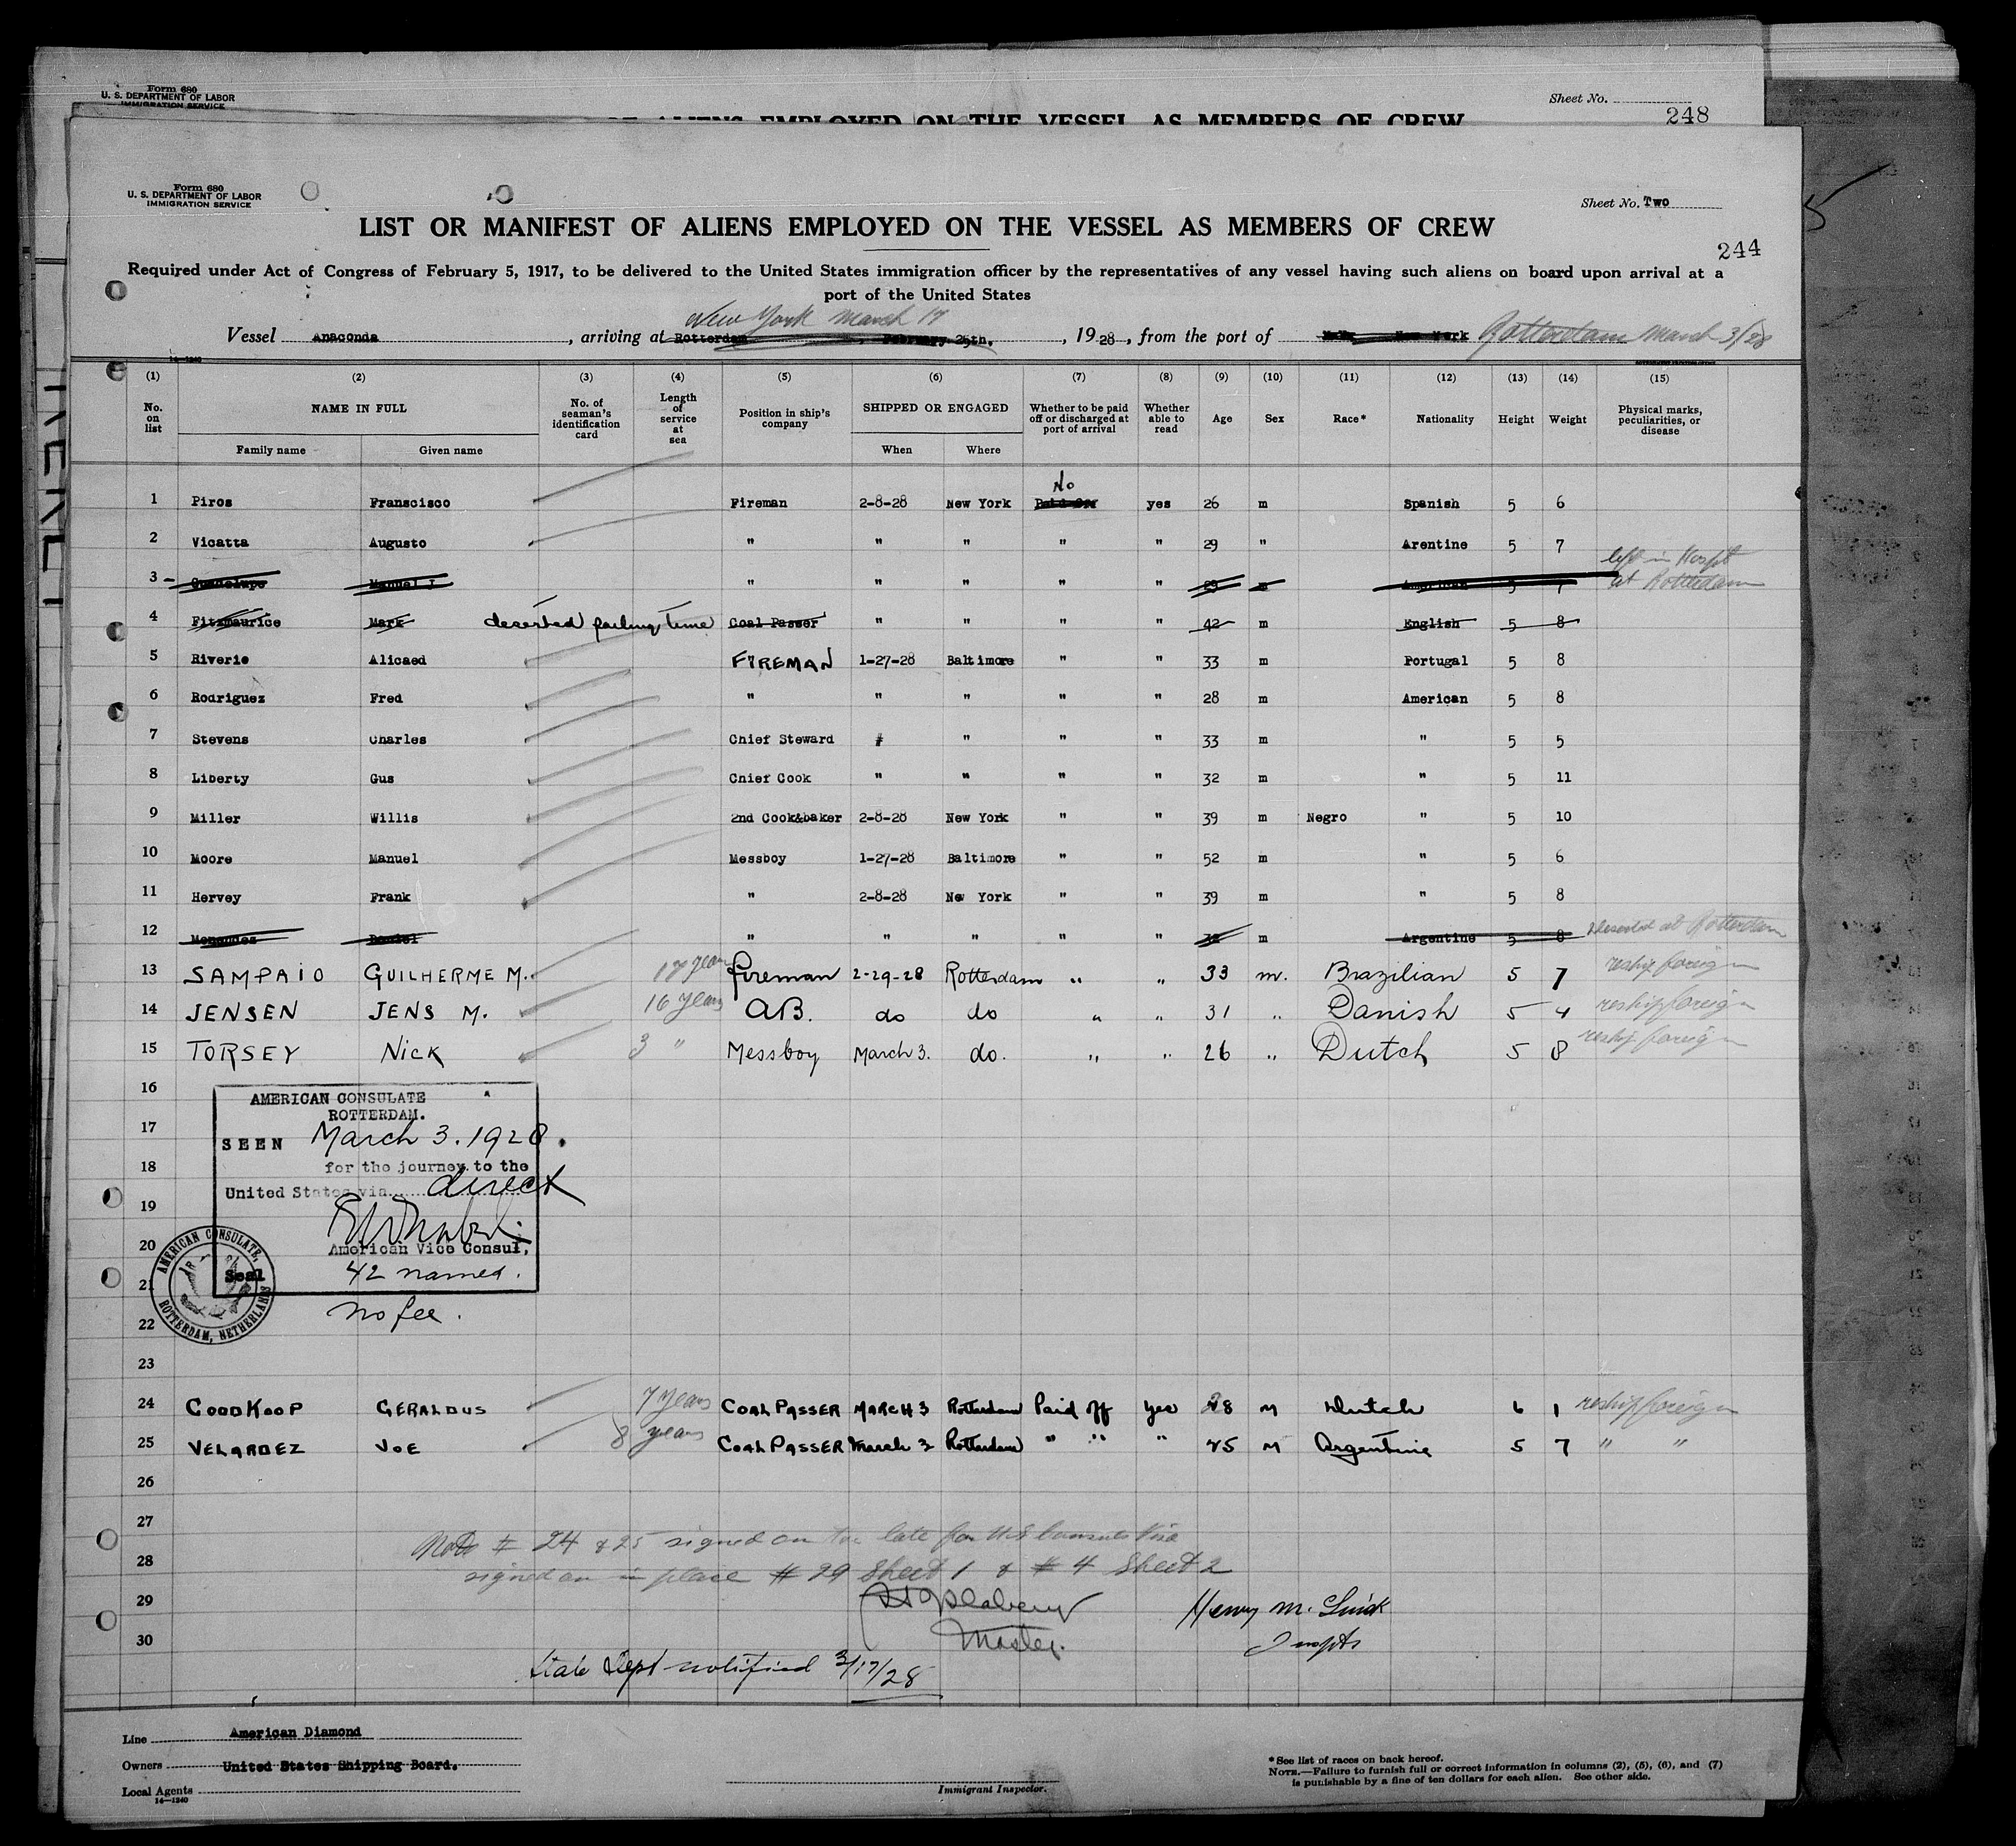 Form 680
U. S. DEPARTMENT OF LABOR
IMMIGRATION SERVICE
Sheet No.
248
OF ALIENS EMPLOYED ON THE VESSEL AS MEMBERS OF CREW
Form 680
U. S. DEPARTMENT OF LABOR
IMMIGRATION SERVICE
Sheet No. Two
LIST OR MANIFEST OF ALIENS EMPLOYED ON THE VESSEL AS MEMBERS OF CREW
244
Required under Act of Congress of February 5, 1917, to be delivered to the United States immigration officer by the representatives of any vessel having such aliens on board upon arrival at a
port of the United States
New York March 17
Vessel Anaconda, arriving at Rotterdam, February 25th, 1928, from the port of New York Rotterdam March 3/28
14-1240
(1) (2) (3) (4) (5) (6) (7) (8) (9) (10) (11) (12) (13) (14) (15)
No. on list NAME IN FULL No. of seaman's identification card Length of service at sea Position in ship's company SHIPPED OR ENGAGED Whether to be paid off or discharged at port of arrival Whether able to read Age Sex Race* Nationality Height Weight Physical marks, peculiarities, or disease
Family name Given name When Where
No
1 Piros Franscisco Fireman 2-8-28 New York Paid Off yes 26 m Spanish 5 6
2 Vicatta Augusto " " " " " 29 " Arentine 5 7
left in Hospt
3 Guadelupe Manuel I " " " " " 29 m American 5 7 at Rotterdam
4 Fitzmaurice Mark deserted sailing time Coal Passer " " " " 42 m English 5 8
5 Riverie Alicaed FIREMAN 1-27-28 Baltimore " " 33 m Portugal 5 8
6 Rodriguez Fred " " " " " 28 m American 5 8
7 Stevens Charles Chief Steward " " " " 33 m " 5 5
8 Liberty Gus Chief Cook " " " " 32 m " 5 11
9 Miller Willis 2nd Cook&baker 2-8-28 New York " " 39 m Negro " 5 10
10 Moore Manuel Messboy 1-27-28 Baltimore " " 52 m " 5 6
11 Hervey Frank " 2-8-28 New York " " 39 m " 5 8
12 Menendez Daniel " " " " " m Argentine 5 8 Deserted at Rotterdam
13 SAMPAIO GUILHERME M. 17 years fireman 2-29-28 Rotterdam " " 33 m. Brazilian 5 7 reship foreign
14 JENSEN JENS M. 16 years AB. do do " " 31 " Danish 5 4 reship foreign
15 TORSEY NICK 3 " Messboy March 3. do. " " 26 " Dutch 5 8 reship foreign
16
AMERICAN CONSULATE
ROTTERDAM.
17
SEEN March 3. 1928.
18
for the journey to the
United States via direct
19
20
American Vice Consul,
AMERICAN CONSULATE, ROTTERDAM, NETHERLANDS
Seal
42 named.
21
no fee.
22
23
24 GOODKOOP GERALDUS 7 years COAL PASSER MARCH 3 Rotterdam Paid off yes 28 M Dutch 6 1 reship foreign
25 VELARDEZ JOE 8 years COAL PASSER March 3 Rotterdam " " " 25 M Argentine 5 7 " "
26
27
Note # 24 & 25 signed on too late for US Consuls Visa
28
signed on in place # 29 Sheet 1 & # 4 Sheet 2
29
Henry M.
30
Master. Inspt
State Dept notified 3/17/28
Line American Diamond
Owners United States Shipping Board.
Local Agents
14-1240
Immigrant Inspector.
*See list of races on back hereof.
NOTE.—Failure to furnish full or correct information in columns (2), (5), (6), and (7)
is punishable by a fine of ten dollars for each alien. See other side.